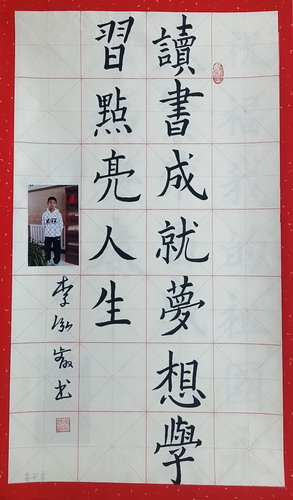 讀書成就夢想學
習點亮人生
李泓睿书